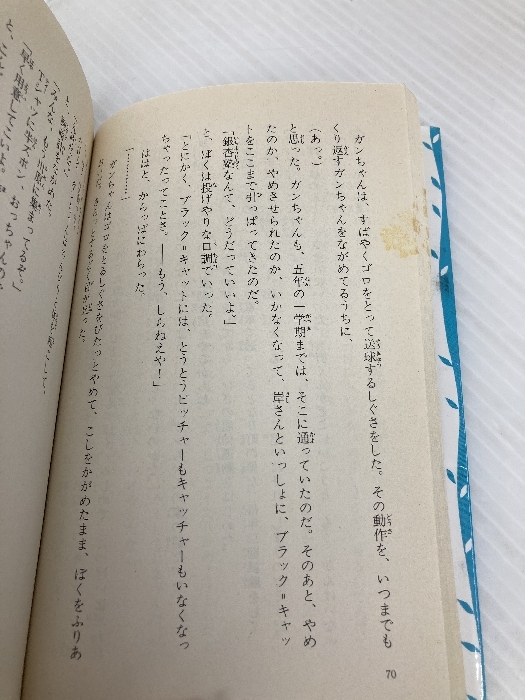 ガンちゃんは、すばやくゴロをとって送球するしぐさをした。その動作を、いつまでも
くり返すガンちゃんをながめてるうちに、
(あっ。)
と思った。ガンちゃんも、五年の一学期までは、そこに通っていたのだ。そのあと、やめ
たのか、やめさせられたのか、いかなくなって、岸さんといっしょに、ブラック=キャッ
トをここまで引っぱってきたのだ。
「銀杏塾なんて、どうだっていいよ。」
と、ぼくは投げやりな口調でいった。
「とにかく、ブラック=キャットには、とうとうピッチャーもキャッチャーもいなくなっ
ちゃったってことさ。――もう、しらねえや!」
ははと、からっぽにわらった。
「…………。」
ガンちゃんはゴロをとるしぐさをぴたっとやめて、こしをかがめたまま、ぼくをふりあ
70
「みんな、もう川原に集まってるぞ。」
Tシャツに半ズボン、おっちゃんの
「早く用意してこいよ。